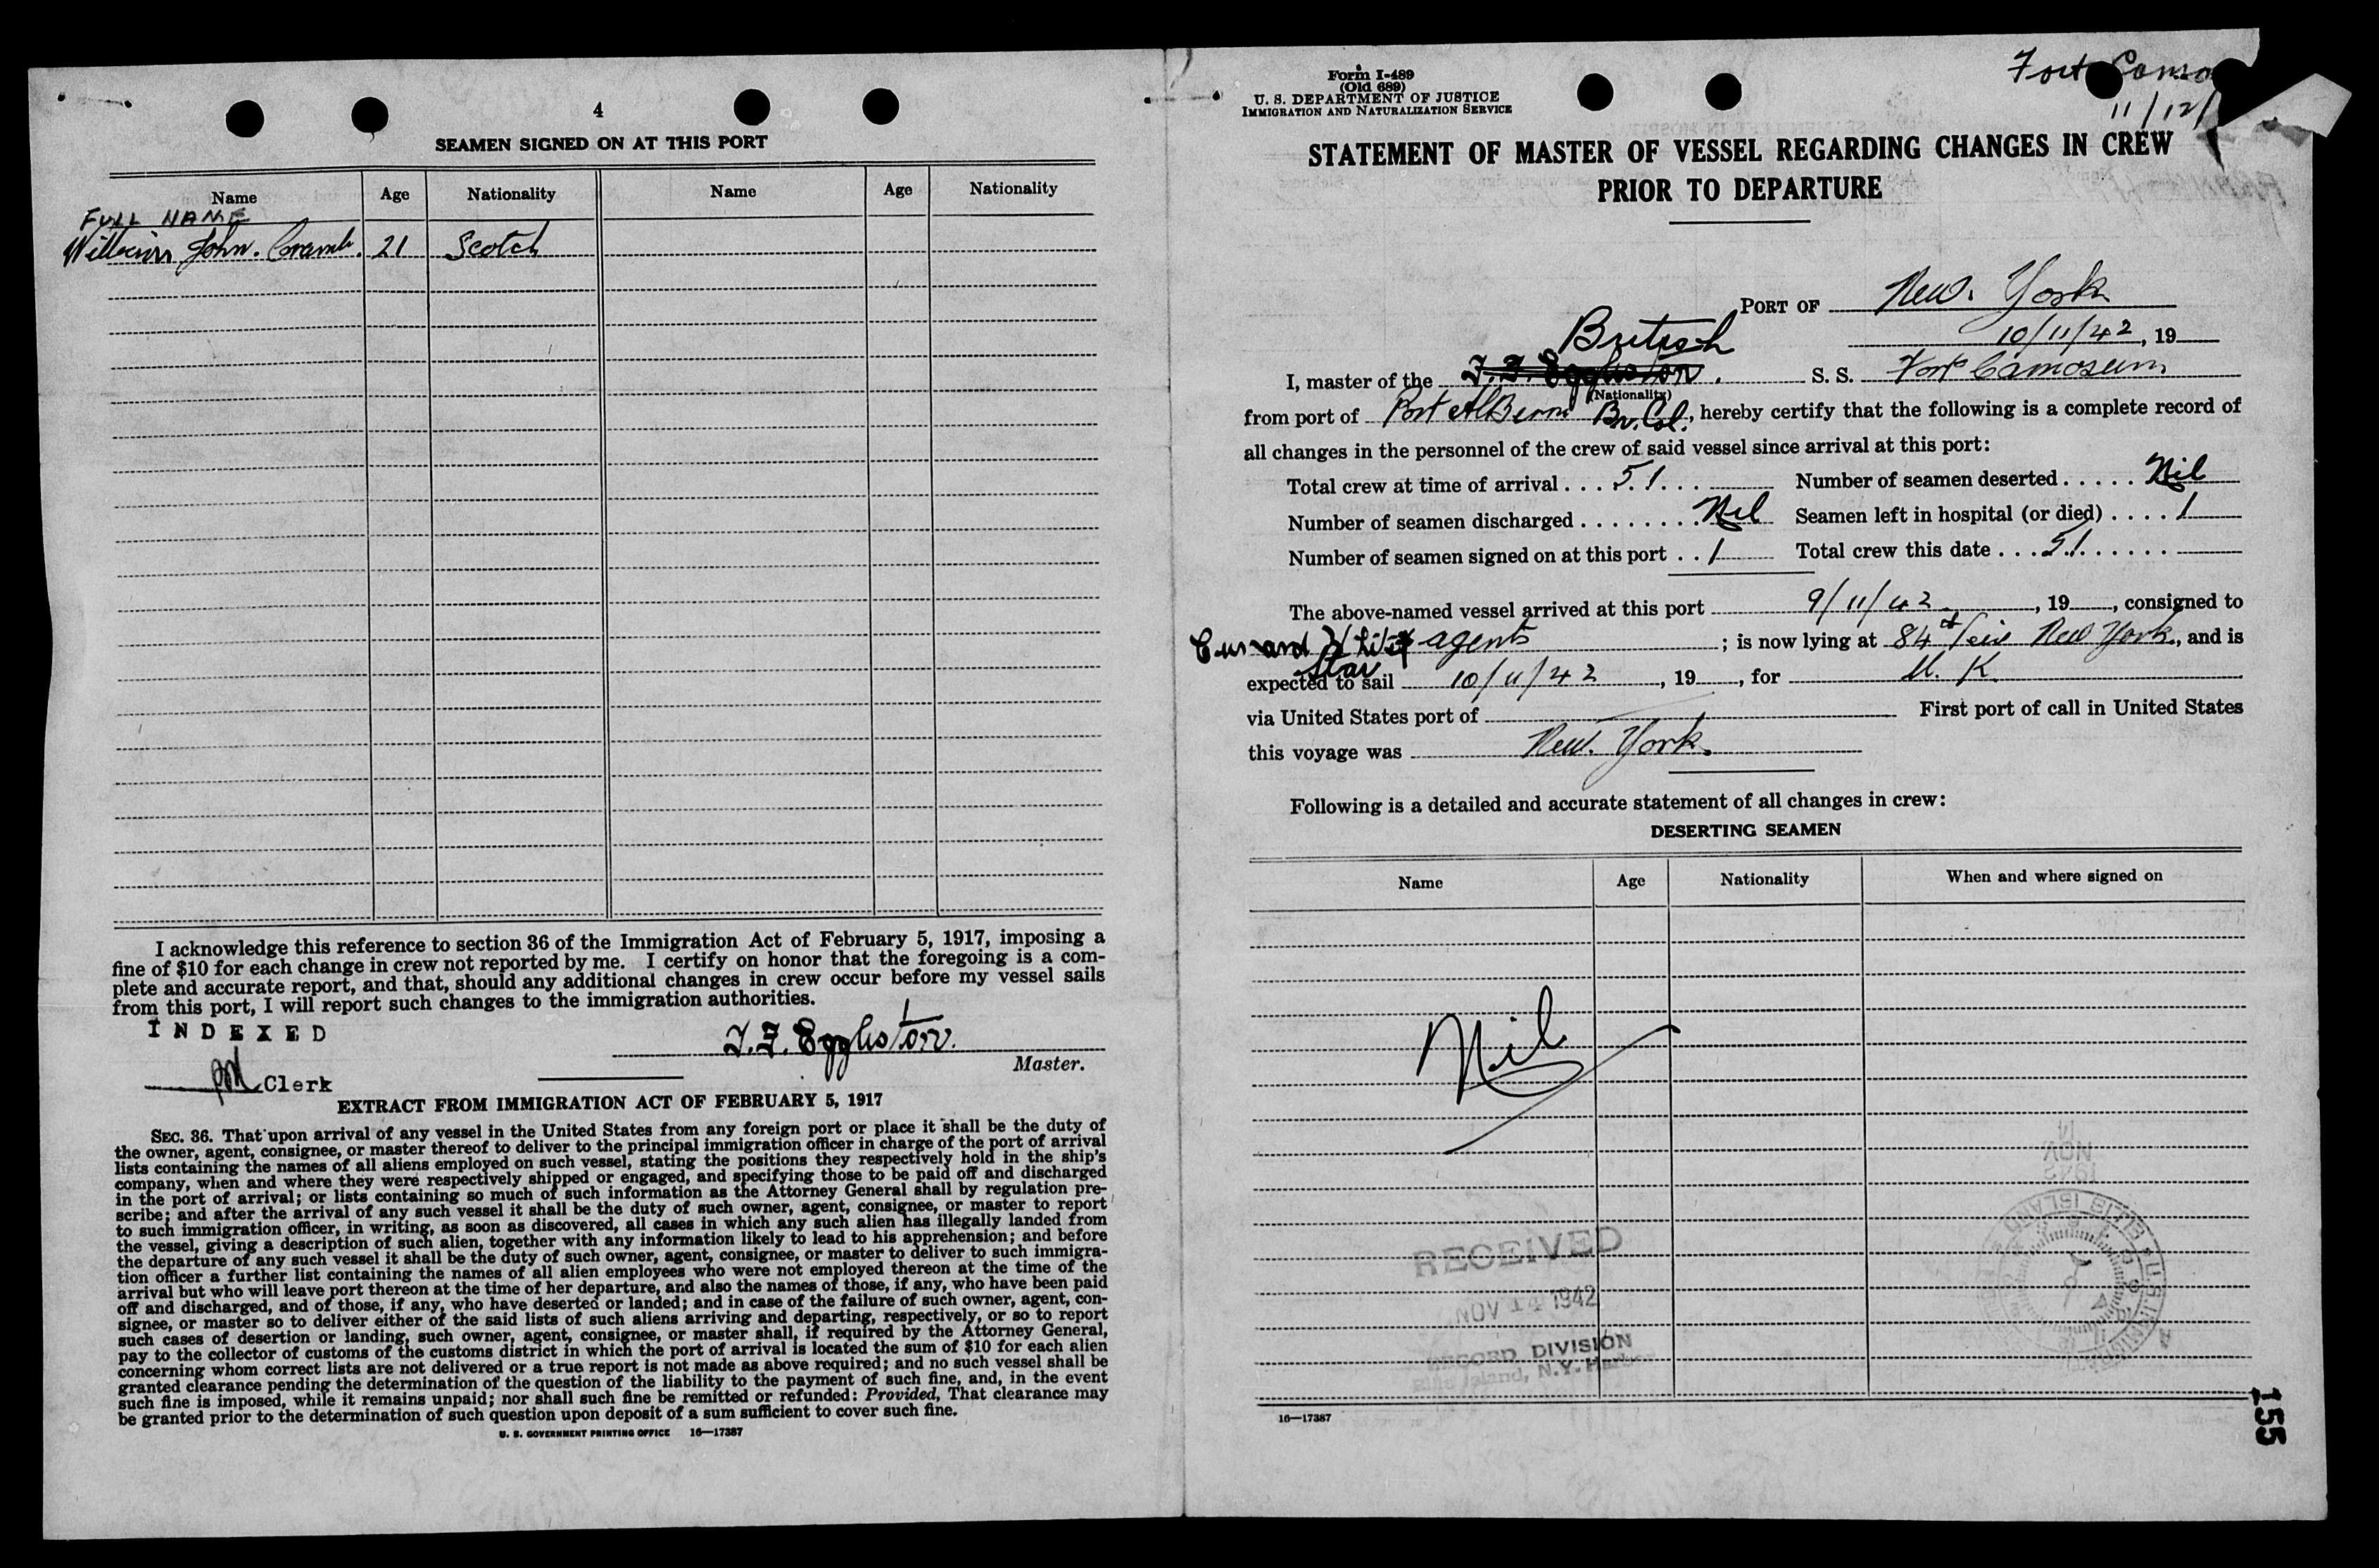 4
SEAMEN SIGNED ON AT THIS PORT
Name Age Nationality Name Age Nationality
FULL NAME
William John. 21 Scotch
I acknowledge this reference to section 36 of the Immigration Act of February 5, 1917, imposing a
fine of $10 for each change in crew not reported by me. I certify on honor that the foregoing is a com-
plete and accurate report, and that, should any additional changes in crew occur before my vessel sails
from this port, I will report such changes to the immigration authorities.
INDEXED
Clerk
J.F. Eggleston.
Master.
EXTRACT FROM IMMIGRATION ACT OF FEBRUARY 5, 1917
SEC. 36. That upon arrival of any vessel in the United States from any foreign port or place it shall be the duty of
the owner, agent, consignee, or master thereof to deliver to the principal immigration officer in charge of the port of arrival
lists containing the names of all aliens employed on such vessel, stating the positions they respectively hold in the ship's
company, when and where they were respectively shipped or engaged, and specifying those to be paid off and discharged
in the port of arrival; or lists containing so much of such information as the Attorney General shall by regulation pre-
scribe; and after the arrival of any such vessel it shall be the duty of such owner, agent, consignee, or master to report
to such immigration officer, in writing, as soon as discovered, all cases in which any such alien has illegally landed from
the vessel, giving a description of such alien, together with any information likely to lead to his apprehension; and before
the departure of any such vessel it shall be the duty of such owner, agent, consignee, or master to deliver to such immigra-
tion officer a further list containing the names of all alien employees who were not employed thereon at the time of the
arrival but who will leave port thereon at the time of her departure, and also the names of those, if any, who have been paid
off and discharged, and of those, if any, who have deserted or landed; and in case of the failure of such owner, agent, con-
signee, or master so to deliver either of the said lists of such aliens arriving and departing, respectively, or so to report
such cases of desertion or landing, such owner, agent, consignee, or master shall, if required by the Attorney General,
pay to the collector of customs of the customs district in which the port of arrival is located the sum of $10 for each alien
concerning whom correct lists are not delivered or a true report is not made as above required; and no such vessel shall be
granted clearance pending the determination of the question of the liability to the payment of such fine, and, in the event
such fine is imposed, while it remains unpaid; nor shall such fine be remitted or refunded: Provided, That clearance may
be granted prior to the determination of such question upon deposit of a sum sufficient to cover such fine.
U. S. GOVERNMENT PRINTING OFFICE 16—17387
Form I-489
(Old 689)
U. S. DEPARTMENT OF JUSTICE
IMMIGRATION AND NATURALIZATION SERVICE
Fort Camo
11/12/
STATEMENT OF MASTER OF VESSEL REGARDING CHANGES IN CREW
PRIOR TO DEPARTURE
PORT OF New. York
10/11/42, 19
British
I, master of the J.F. Eggleston. S. S. Fort Camosun,
(Nationality)
from port of Port Alberni Br. Col., hereby certify that the following is a complete record of
all changes in the personnel of the crew of said vessel since arrival at this port:
Total crew at time of arrival . . . 51. . . Number of seamen deserted . . . . . Nil
Number of seamen discharged . . . . . . . . Nil Seamen left in hospital (or died) . . . . 1
Number of seamen signed on at this port . . 1 Total crew this date . . . 51. . . . . .
The above-named vessel arrived at this port 9/11/42, 19 , consigned to
Cunard White Star agents ; is now lying at 84th Pier New York, and is
expected to sail 10/11/42 , 19 , for U. K.
via United States port of First port of call in United States
this voyage was New. York.
Following is a detailed and accurate statement of all changes in crew:
DESERTING SEAMEN
Name Age Nationality When and where signed on
Nil
RECEIVED
NOV 14 1942
RECORD DIVISION
Ellis Island, N.Y. Harbor
NOV
1942
16—17387
155